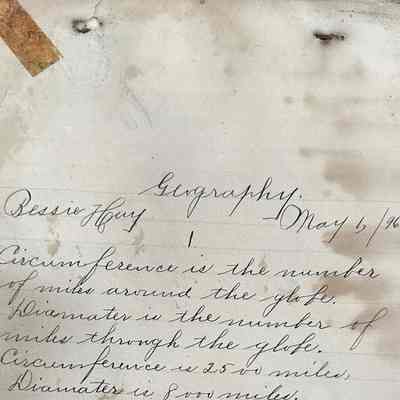 Geography.
Bessie Hay May 6/96
1
Circumference is the number
of miles around the globe.
Diamater is the number of
miles through the globe.
Circumference is 2500 miles,
Diamater is 8000 miles.